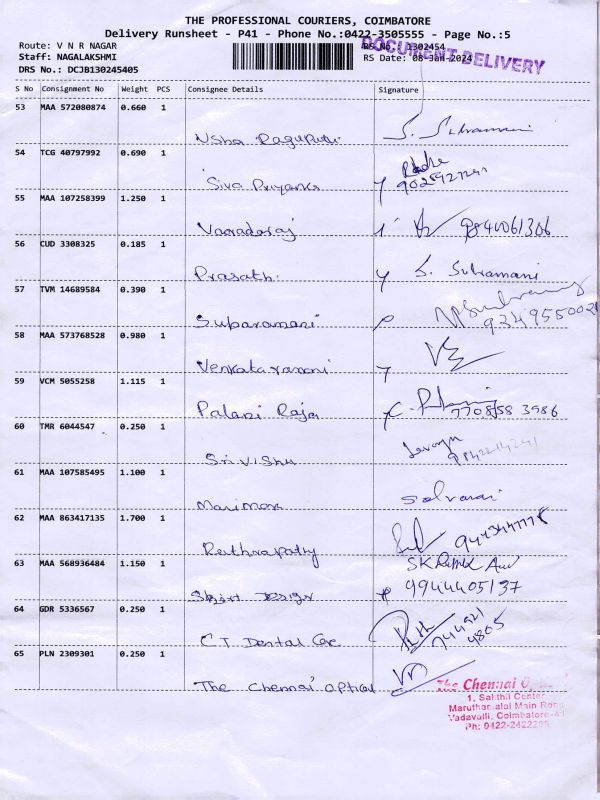 THE PROFESSIONAL COURIERS, COIMBATORE
Delivery Runsheet - P41 - Phone No.:0422-3505555 - Page No.:5
Route: V N R NAGAR
RS No. 1302454
Staff: NAGALAKSHMI
RS Date: 08-Jan-2024
DOCUMENT DELIVERY
DRS No.: DCJB130245405
S No Consignment No Weight PCS Consignee Details Signature
53 MAA 572080874 0.660 1
Usha Ragupathi S. Subramani
54 TCG 40797992 0.690 1
Siva Priyanka
55 MAA 107258399 1.250 1
Vaaradaraj 9840061306
56 CUD 3308325 0.185 1
Prasath S. Subramani
57 TVM 14689584 0.390 1
Subaramani
58 MAA 573768528 0.980 1
Venkataramani
59 VCM 5055258 1.115 1
Palani Raja 7708558 3986
60 TMR 6044547 0.250 1
Sri Vishu
61 MAA 107585495 1.100 1
62 MAA 863417135 1.700 1
63 MAA 568936484 1.150 1
Design 9944405137
64 GDR 5336567 0.250 1
C.T. Dental Care
65 PLN 2309301 0.250 1
The Chennai Optical
The Chennai
1, Sakthil Center
Maruthamalai Main Road
Vadavalli, Coimbatore-41
Ph: 0422-2422289